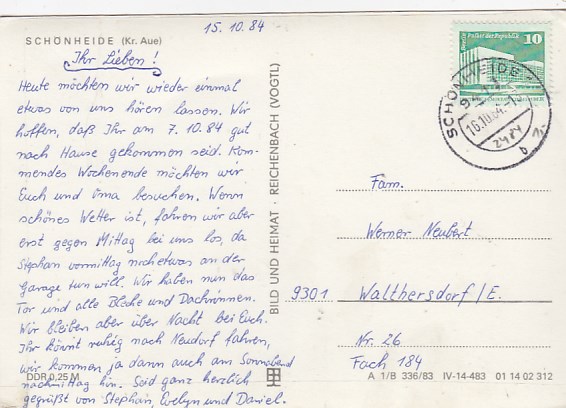 15.10.84
SCHÖNHEIDE (Kr. Aue)
Ihr Lieben!
Heute möchten wir wieder einmal
etwas von uns hören lassen. Wir
hoffen, daß Ihr am 7.10.84 gut
nach Hause gekommen seid. Kom-
mendes Wochenende möchten wir
Euch und Oma besuchen. Wenn
schönes Wetter ist, fahren wir aber
erst gegen Mittag bei uns los, da
Stephan vormittag noch etwas an der
Garage tun will. Wir haben nun das
Tor und alle Bleche und Dachrinnen.
Wir bleiben aber über Nacht bei Euch.
Ihr könnt ruhig nach Neudorf fahren,
wir kommen ja dann auch am Sonnabend
nachmittag hin. Seid ganz herzlich
gegrüßt von Stephan, Evelyn und Daniel.
DDR 0,25 M
BILD UND HEIMAT · REICHENBACH (VOGTL)
Berlin Palast der Republik
10
SCHÖNHEIDE
16.10.84
9424
b
Fam.
Werner Neubert
9301 Walthersdorf/E.
Nr. 26
Fach 184
A 1/B 336/83 IV-14-483 01 14 02 312